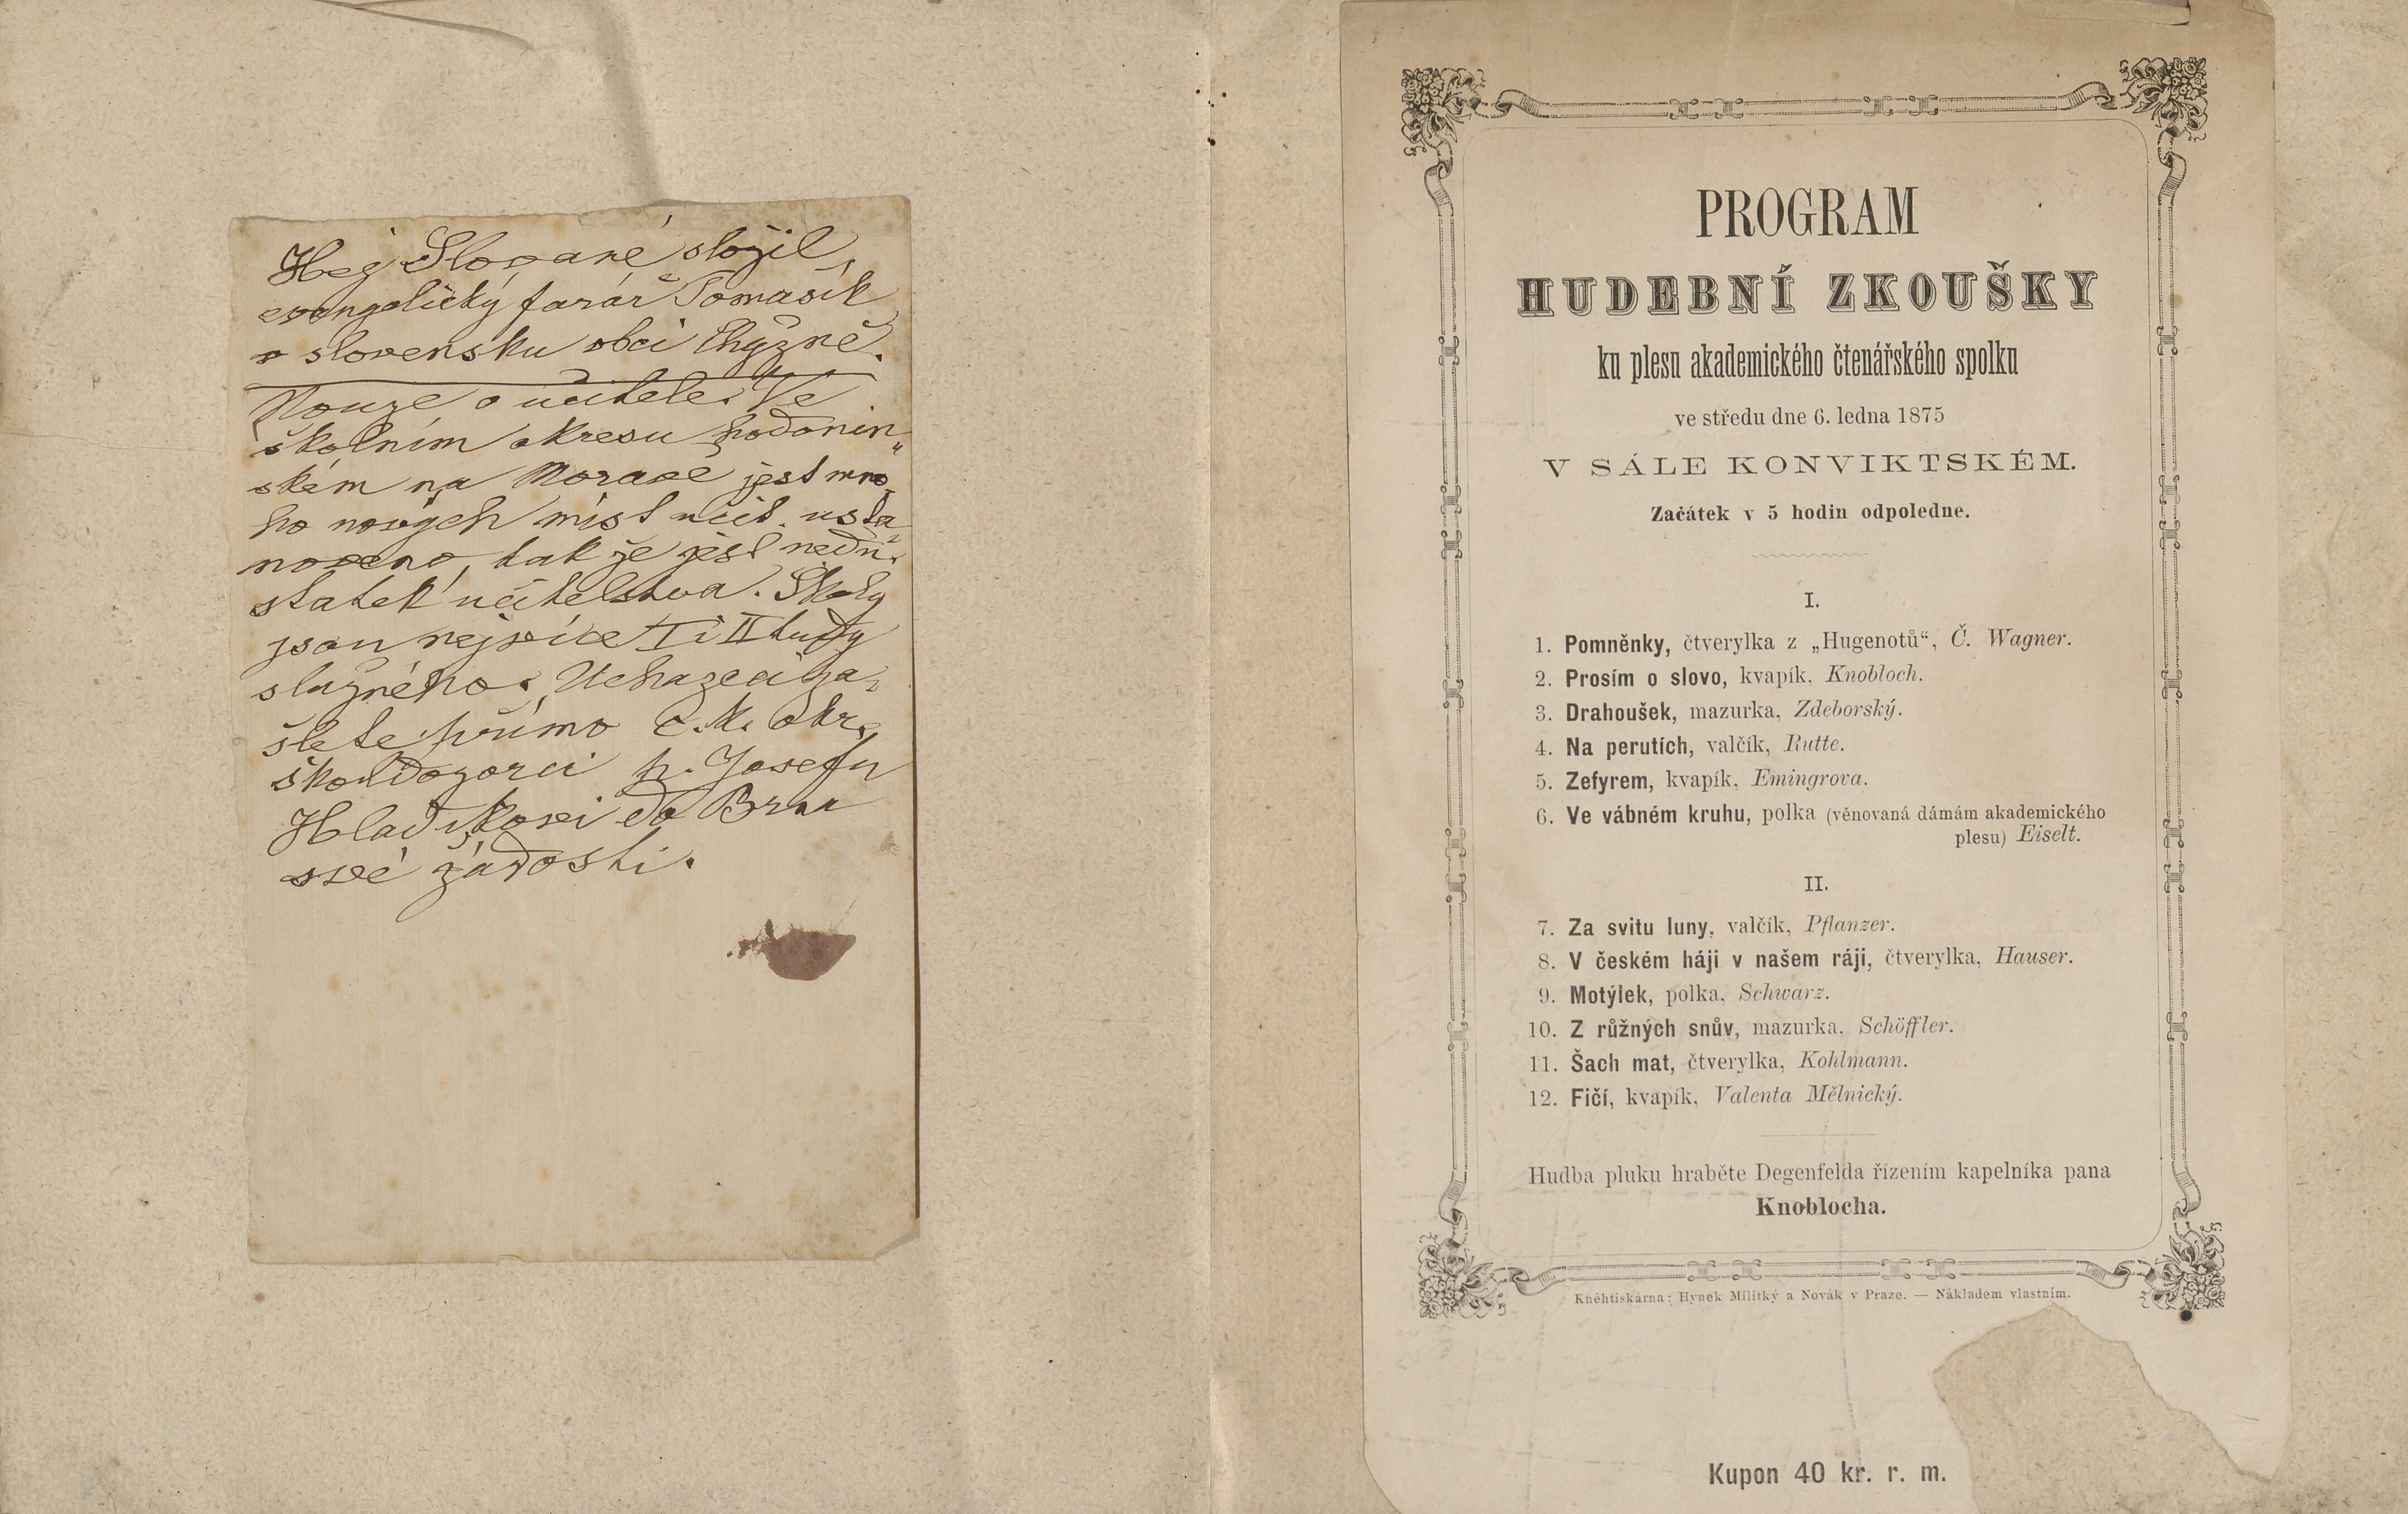 Hej Slované složil
evangelický farář Tomasík
v slovensku obci Chyzně.
Nouze o učitele. Ve
školním okresu hodonín„
ském na Moravě jest mno„
ho nových míst učit. usta„
noveno, tak že jest nedo„
statek učitelstva. Školy
jsou nejvíce I i II třídy
služného. Uchazeči za„
šlete přímo c. k. okr.
škol. dozorci p. Josefu
Hladíkovi do Brna
své žádosti.
PROGRAM
HUDEBNÍ ZKOUŠKY
ku plesu akademického čtenářského spolku
ve středu dne 6. ledna 1875
V SÁLE KONVIKTSKÉM.
Začátek v 5 hodin odpoledne.
I.
1. Pomněnky, čtverylka z „Hugenotů“, Č. Wagner.
2. Prosím o slovo, kvapík, Knobloch.
3. Drahoušek, mazurka, Zdeborský.
4. Na perutích, valčík, Rutte.
5. Zefyrem, kvapík, Emingrova.
6. Ve vábném kruhu, polka (věnovaná dámám akademického
plesu) Eiselt.
II.
7. Za svitu luny, valčík, Pflanzer.
8. V českém háji v našem ráji, čtverylka, Hauser.
9. Motýlek, polka, Schwarz.
10. Z růžných snův, mazurka, Schöffler.
11. Šach mat, čtverylka, Kohlmann.
12. Fičí, kvapík, Valenta Mělnický.
Hudba pluku hraběte Degenfelda řízením kapelníka pana
Knoblocha.
Kněhtiskárna: Hynek Militký a Novák v Praze. — Nákladem vlastním.
Kupon 40 kr. r. m.